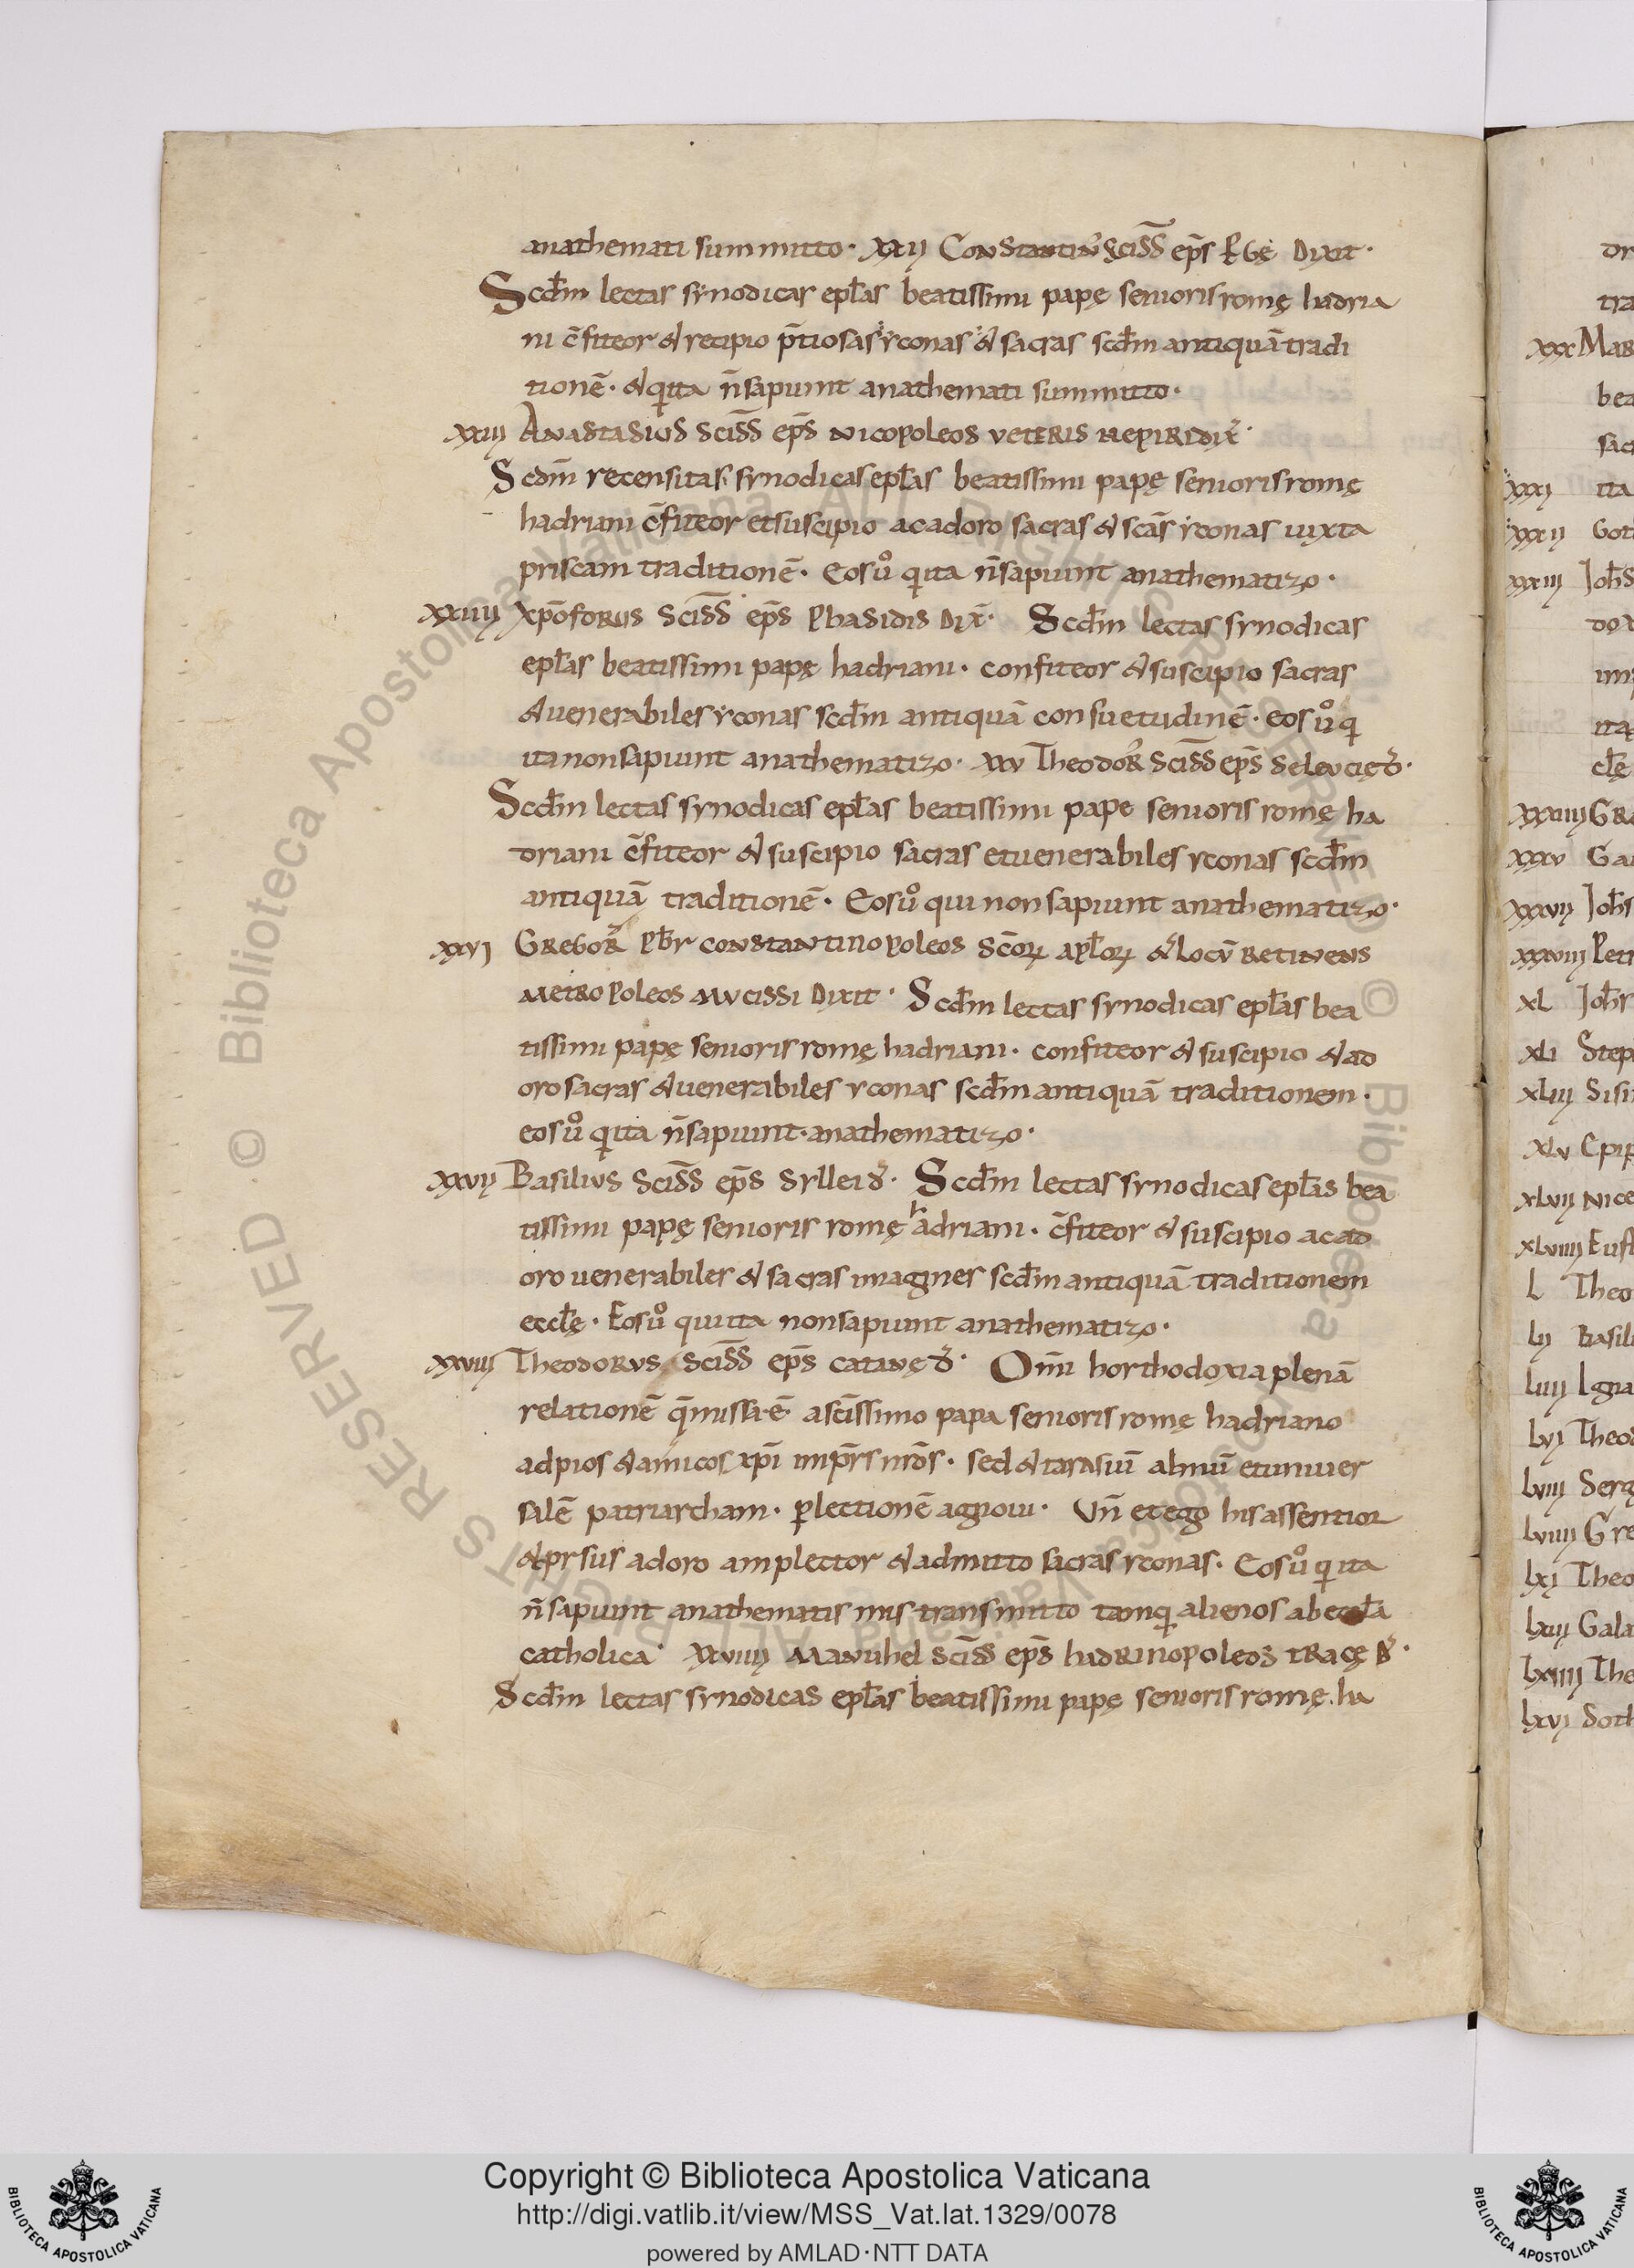 anathemati summitto· XXII Constantin᾽ sciss̄ ep̄s PGę Dixit·
Scd̄m lectas synodicas ep̄las beatissimi papę senioris romę hadria
ni c̄fiteor & recipio p̄tiosas yconas & sacras scd̄m antiquā tradi
tionē· & q ita n̄ sapiunt anathemati summitto·
XXIII Anastasius sciss̄ ep̄s nicopoleos veteris nepiri dix̄·
Scdm̄ recensitas synodicas ep̄las beatissimi papę senioris romę
hadriani c̄fiteor et suscipio ac adoro sacras & scās yconas iuxta
priscam traditionē· Eos ů q ita n̄ sapiunt anathematizo·
XXIIII Xp̄oforus sciss̄ ep̄s Phasidis Dix̄· Scd̄m lectas synodicas
ep̄las beatissimi papę hadriani· confiteor & suscipio sacras
& uenerabiles yconas scd̄m antiquā consuetudinē· eos ů q
ita non sapiunt anathematizo· XXV Theodor᾽ sciss̄ ep̄s seleucię d̄·
Scd̄m lectas synodicas ep̄las beatissimi pape senioris romę ha
driani c̄fiteor & suscipio sacras et uenerabiles yconas scd̄m
antiquā traditionē· Eos ů qui non sapiunt anathematizo·
XXVI Gregor᾽ Pb̄r constantinopoleos sc̄oꝝ ap̄loꝝ & locū retinens
metropoleos nucissi Dixit· Scd̄m lectas synodicas ep̄las bea
tissimi papę senioris romę hadriani· confiteor & suscipio & ad
oro sacras & uenerabiles yconas scd̄m antiquā traditionem·
eos ů q ita n̄ sapiunt· anathematizo·
XXVII Basilius sciss̄ ep̄s syllei d̄· Scd̄m lectas synodicas ep̄las bea
tissimi papę senioris romę hadriani· c̄fiteor & suscipio ac ad
oro uenerabiles & sacras imagines scd̄m antiquā traditionem
eccl̄ę· Eos ů qui ita non sapiunt anathematizo·
XXVIII Theodorus sciss̄ ep̄s catinę d̄· Om̄i horthodoxia plenā
relationē q̄ missa ē· a sc̄issimo papa senioris romę hadriano
ad pios & amicos xp̄i imp̄rs nrōs· sed & tarasiū almū et uniuer
salē patriarcham· ꝑ lectionē agnoui· Vn̄ et ego his assentior
& prsus adoro amplector & admitto sacras yconas· Eos ů q ita
n̄ sapiunt anathematis mis transmitto tamq alienos ab eccl̄a
catholica· XXVIIII Manuhel sciss̄ ep̄s hadrinopoleos tracę d̄·
Scd̄m lectas synodicas ep̄las beatissimi papę senioris romę ha
XXX
XXXI ita
XXXII
XXXIII
XXXIIII
XXXV
XXXVII
XXXVIII
XL
XLI
XLIII
XLV
XLVII
XLVIIII
L
LII
LIIII
LVI
LVIII
LVIIII
LXI
LXIII
LXIIII
LXVI
© Biblioteca Apostolica Vaticana ALL RIGHTS RESERVED
Copyright © Biblioteca Apostolica Vaticana
http://digi.vatlib.it/view/MSS_Vat.lat.1329/0078
powered by AMLAD·NTT DATA
BIBLIOTECA APOSTOLICA VATICANA
BIBLIOTECA APOSTOLICA VATICANA